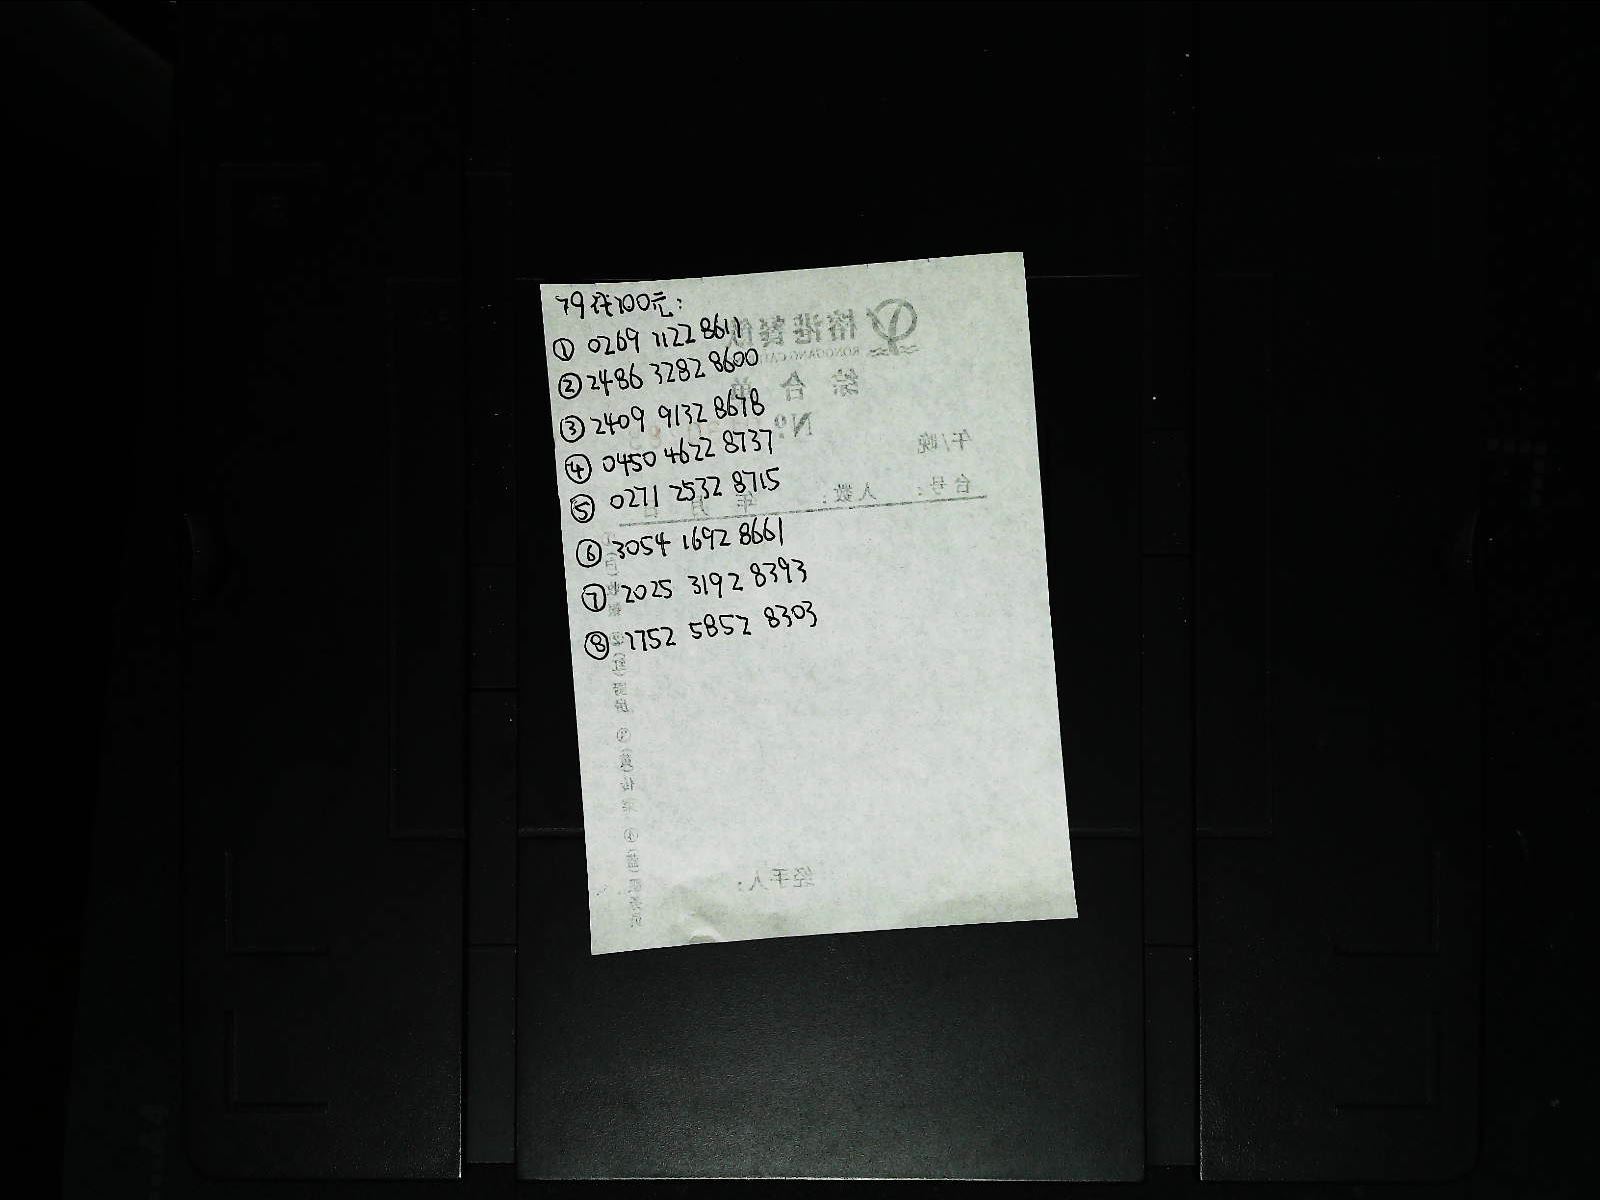 79代100元:
① 0269 1122 8611
② 2486 3282 8600
③ 2409 9132 8678
④ 0450 4622 8737
⑤ 0271 2532 8715
⑥ 3054 1692 8661
⑦ 2025 3192 8393
⑧ 1752 5852 8303
榕港餐饮
综合单
Nº
午/晚
台号: 人数: 年 月 日
经手人: